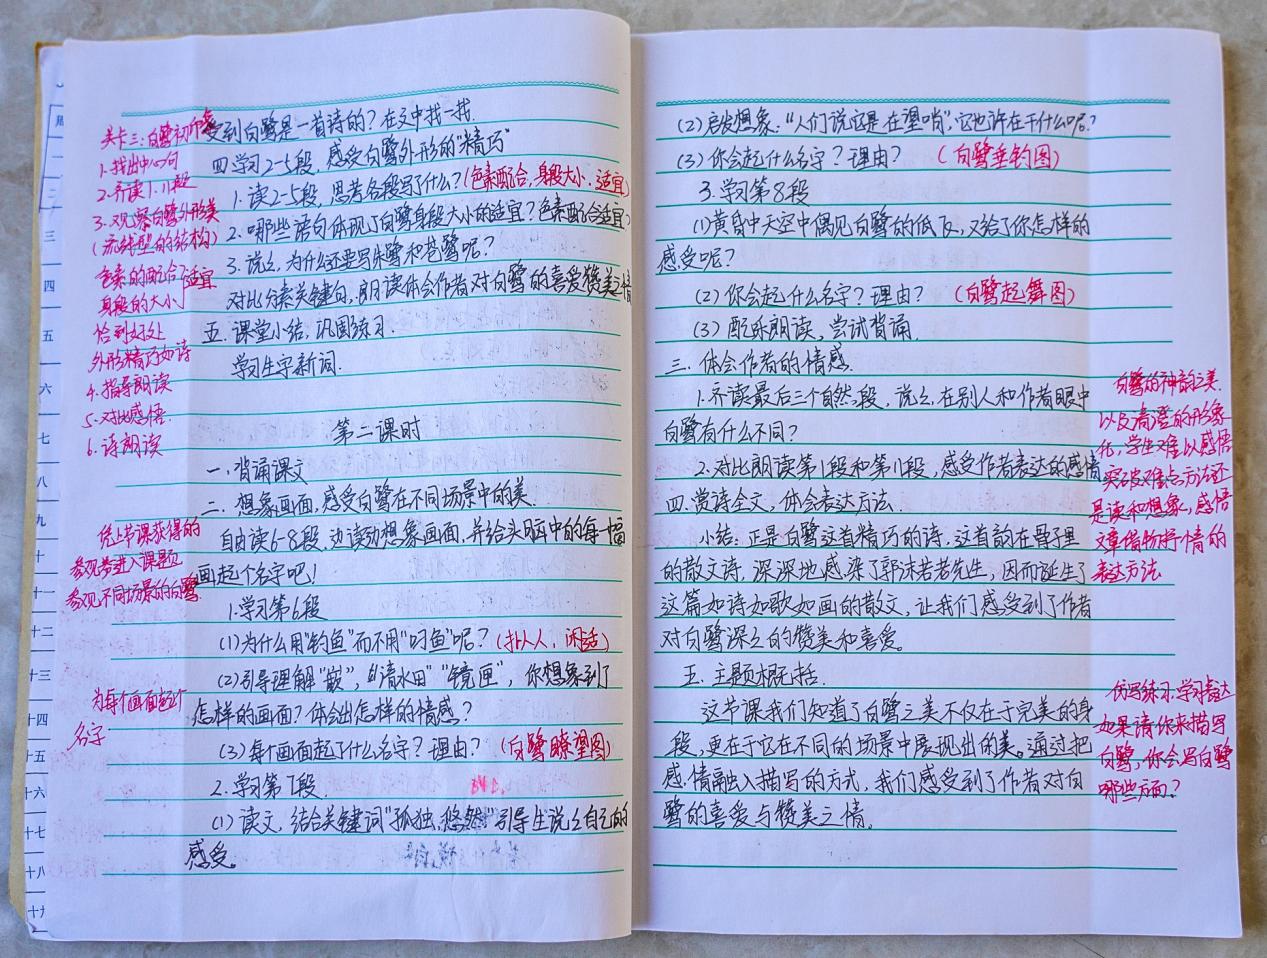 关卡三:白鹭初印象
1.找出中心句
2.齐读1.11段
3.观察白鹭外形美
(流线型的结构)
色素的配合 适宜
身段的大小
恰到好处
外形精巧如诗
4.指导朗读
5.对比感悟
6.诗朗读
凭上节课获得的
参观券进入课题
参观不同场景的白鹭
为每个画面起个
名字
受到白鹭是一首诗的?在文中找一找.
四.学习2-5段,感受白鹭外形的“精巧”
1.读2-5段,思考各段写了什么?(色素配合,身段大小.适宜)
2.哪些语句体现了白鹭身段大小的适宜?色素配合适宜?
3.说么,为什么还要写朱鹭和苍鹭呢?
对比分素关键句,朗读体会作者对白鹭的喜爱赞美之情
五.课堂小结,巩固练习.
学习生字新词.
第二课时
一.背诵课文
二.想象画面,感受白鹭在不同场景中的美.
自由读6-8段,边读边想象画面,并给头脑中的每一幅
画起个名字吧!
1.学习第6段
(1)为什么用“钓鱼”而不用“叼鱼”呢?(扑人人,闲适)
(2)引导理解“嵌”,“清水田”“镜匣”,你想象到了
怎样的画面?体会出怎样的情感?
(3)每个画面起了什么名字?理由?(白鹭瞭望图)
2.学习第7段.
(1)读文,结合关键词“孤独,悠然”引导生说么自己的
感受。
(2)启发想象:“人们说它是在望哨”,它也许在干什么呢?
(3)你会起什么名字?理由?(白鹭垂钓图)
3.学习第8段
(1)黄昏中天空中偶见白鹭的低飞,又给了你怎样的
感受呢?
(2)你会起什么名字?理由?(白鹭起舞图)
(3)配乐朗读,尝试背诵.
三.体会作者的情感.
1.齐读最后三个自然段,说么,在别人和作者眼中
白鹭有什么不同?
2.对比朗读第1段和第11段,感受作者表达的感情
四.赏诗全文,体会表达方法.
小结:正是白鹭这首精巧的诗,这首韵在骨子里
的散文诗,深深地感染了郭沫若老先生,因而诞生了
这篇如诗如歌如画的散文,让我们感受到了作者
对白鹭深之的赞美和喜爱。
五.主题概括.
这节课我们知道了白鹭之美不仅在于完美的身
段,更在于它在不同的场景中展现出的美。通过把
感情融入描写的方式,我们感受到了作者对白
鹭的喜爱与赞美之情。
白鹭的神韵之美
以及高澄的形象
化,学生难以感悟
突破难点方法还
是读和想象,感悟
文章借物抒情的
表达方法
仿写练习:学习表达
如果请你来描写
白鹭,你会写白鹭
哪些方面?
周
一
二
三
四
五
六
七
八
九
十
十一
十二
十三
十四
十五
十六
十七
十八
十九